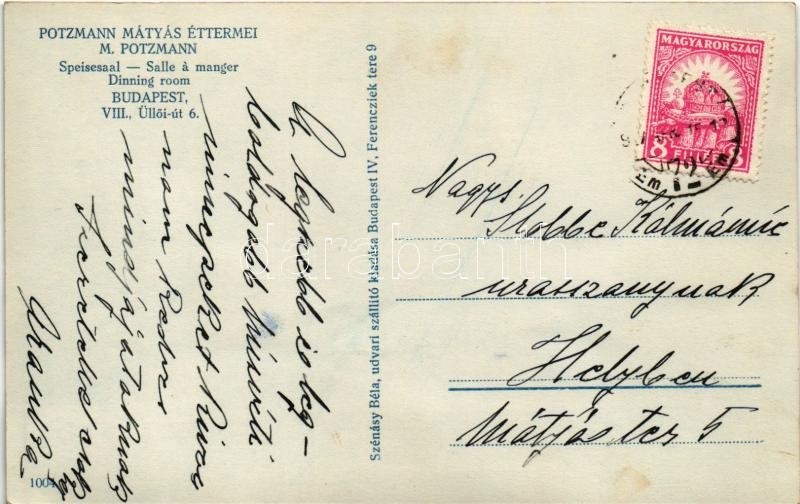 POTZMANN MÁTYÁS ÉTTERMEI
M. POTZMANN
Speisesaal — Salle à manger
Dinning room
BUDAPEST,
VIII., Üllői-út 6.
A legszebb és leg-
boldogabb húsvéti
ünnepeket kíván
nem
mindnyájatoknak
Szeretettel
Aranka
1004
Szénásy Béla, udvari szállító kiadása Budapest IV, Ferencziek tere 9
MAGYARORSZÁG
8 FILLÉR
72
Nagys.
Stobbe Kálmánné
urasszonynak
Helyben
Mátyás tér 5
darabanth